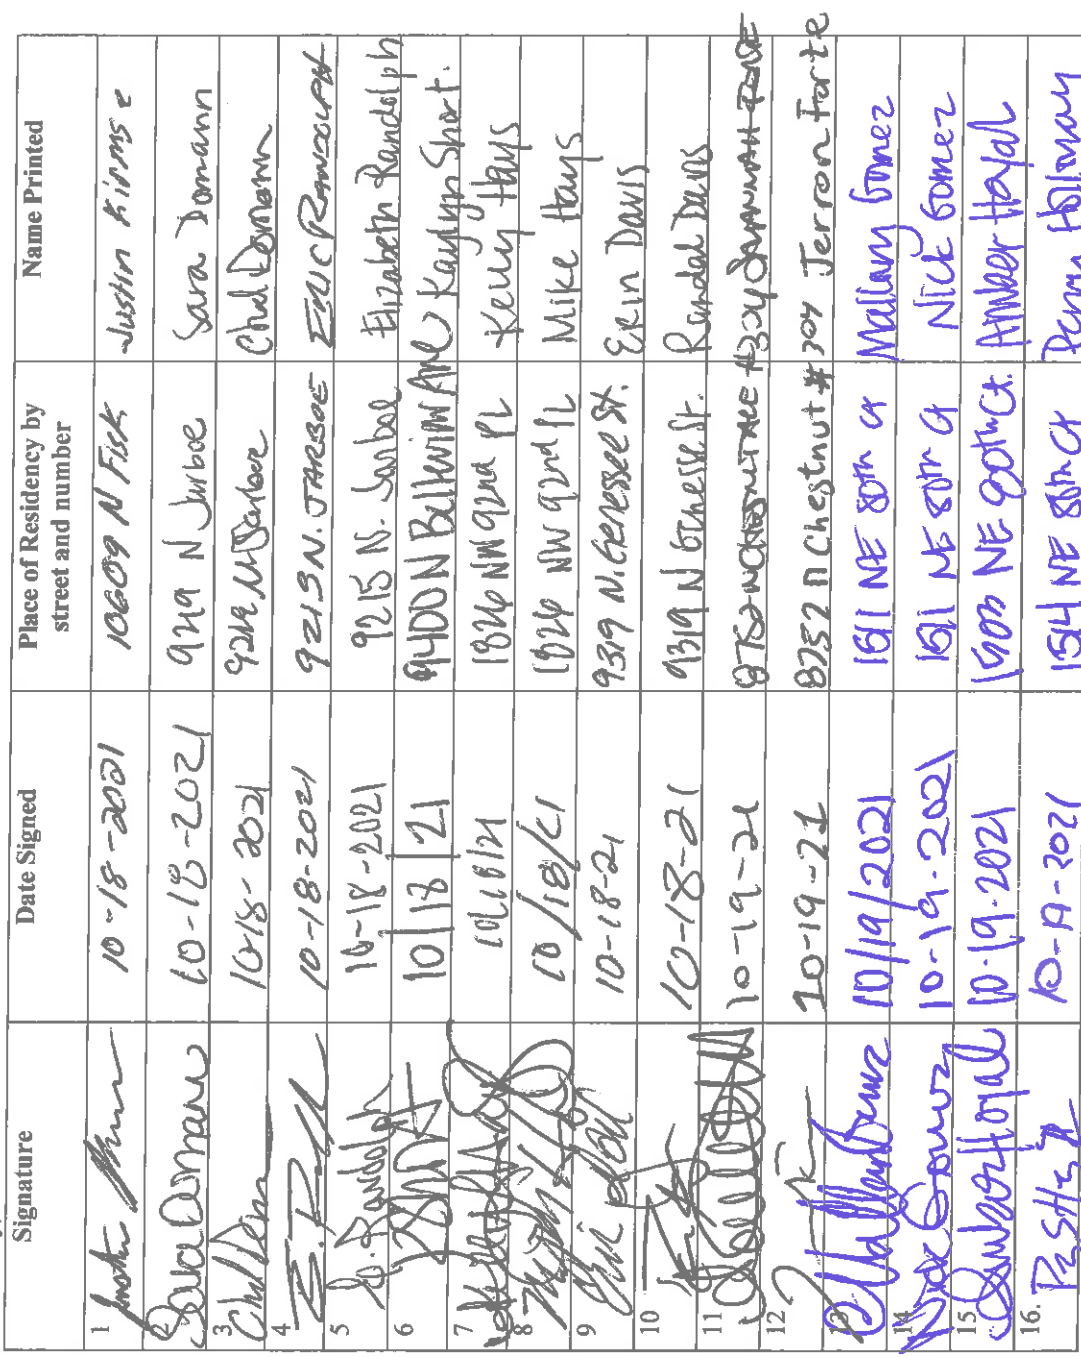 Signature Date Signed Place of Residency by street and number Name Printed
1 10-18-2021 10609 N Fisk Justin Kirmse
2 Sara Domann 10-18-2021 9219 N Jarboe Sara Domann
3 10-18-2021 9219 N Jarboe Chad Domann
4 10-18-2021 9215 N. JARBOE ERIC RANDOLPH
5 10-18-2021 9215 N. Jarboe Elizabeth Randolph
6 10/18/21 9400 N Bellview Ave Kaylyn Short
7 10/18/21 1826 NW 92nd PL Kelly Hays
8 10/18/21 1826 NW 92nd PL Mike Hays
9 10-18-21 9319 N. Genessee St. Erin Davis
10 10-18-21 9319 N Genesse St. Randal Davis
11 10-19-21 #304 SAVANNAH
12 10-19-21 8252 N Chestnut #304 Jerron Forte
13 10/19/2021 1511 NE 80th Ct Mallary Gomez
14 Nick Gomez 10-19-2021 1511 NE 80th Ct Nick Gomez
15 Amber Hoyal 10-19-2021 NE 80th Ct. Amber Hoyal
16. 10-19-2021 1514 NE 80th Ct